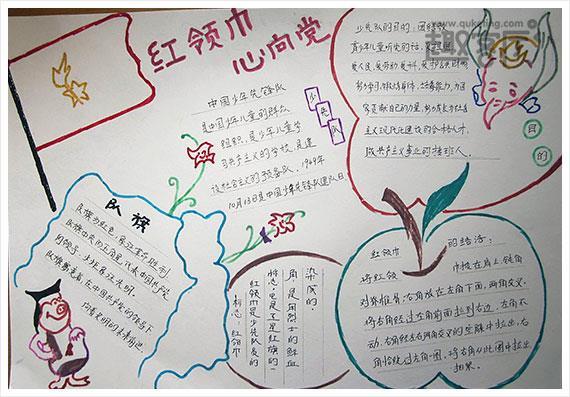 红领巾
心向党
中国少年先锋队
是中国少年儿童的群众
组织，是少年儿童学
习共产主义的学校，是建
设社会主义的预备队，1949年
10月13日是中国少年先锋队建队日
少先队
少先队的目的：团结教
育少年儿童听党的话，爱祖国，
爱人民，爱劳动，爱科学，爱护公共财物
努力学习，锻炼身体，培养能力，为
贡献自己的力量，努力成长为社会
主义现代化建设的合格人才，
做共产主义事业的接班人。
目的
队旗
队旗为红色，象征革命胜利
队旗中央的五角星，代表中国共产党
的领导，火炬象征光明，
队旗
在中国共产党的领导下
向着光明的未来前进。
染成的。
角，是用烈士的鲜血
标志，它是五星红旗的一
红领巾是少先队员的
标志：红领巾
红领巾
的结法：
将红领巾披在肩上，钝角
对脊椎骨，右角放在左角下面，两角交叉，
将右角经过左角前面拉到右边，左角不
动，右角经左右两角交叉的空隙中拉出，右
角恰绕过左角一圈，将右角从此圈中拉出
抽紧。
www.qukezing.com